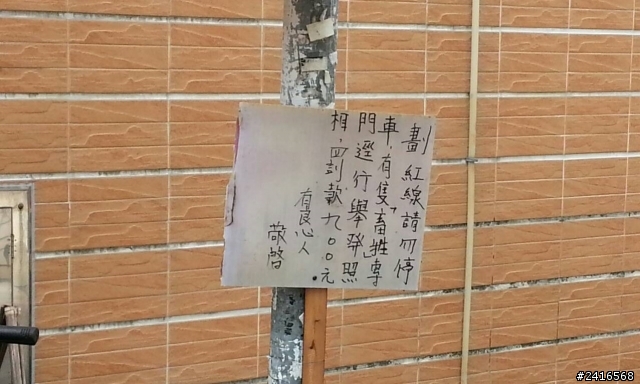 劃紅線請勿停
車，有隻「畜牲」專
門逕行舉發照
相，罰款九００元.
有良心人
敬啓
#2416568